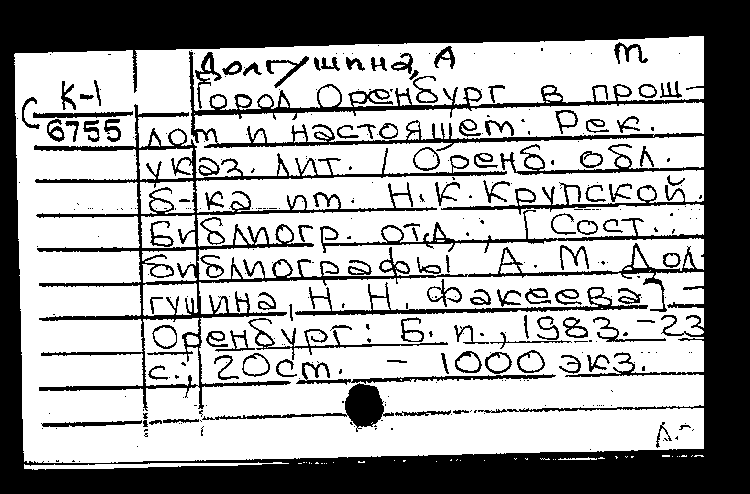 Долгушина, А m
К-1
Город Оренбург в прош-
С 6755
лом и настоящем: Рек.
указ. лит. / Оренб. обл.
б-ка им. Н.К. Крупской.
Библиогр. отд.; [Сост.:
библиографы А. М. Дол-
гушина, Н. Н. Факеева] -
Оренбург: Б. и., 1983. - 23
с.; 20 см. - 1000 экз.